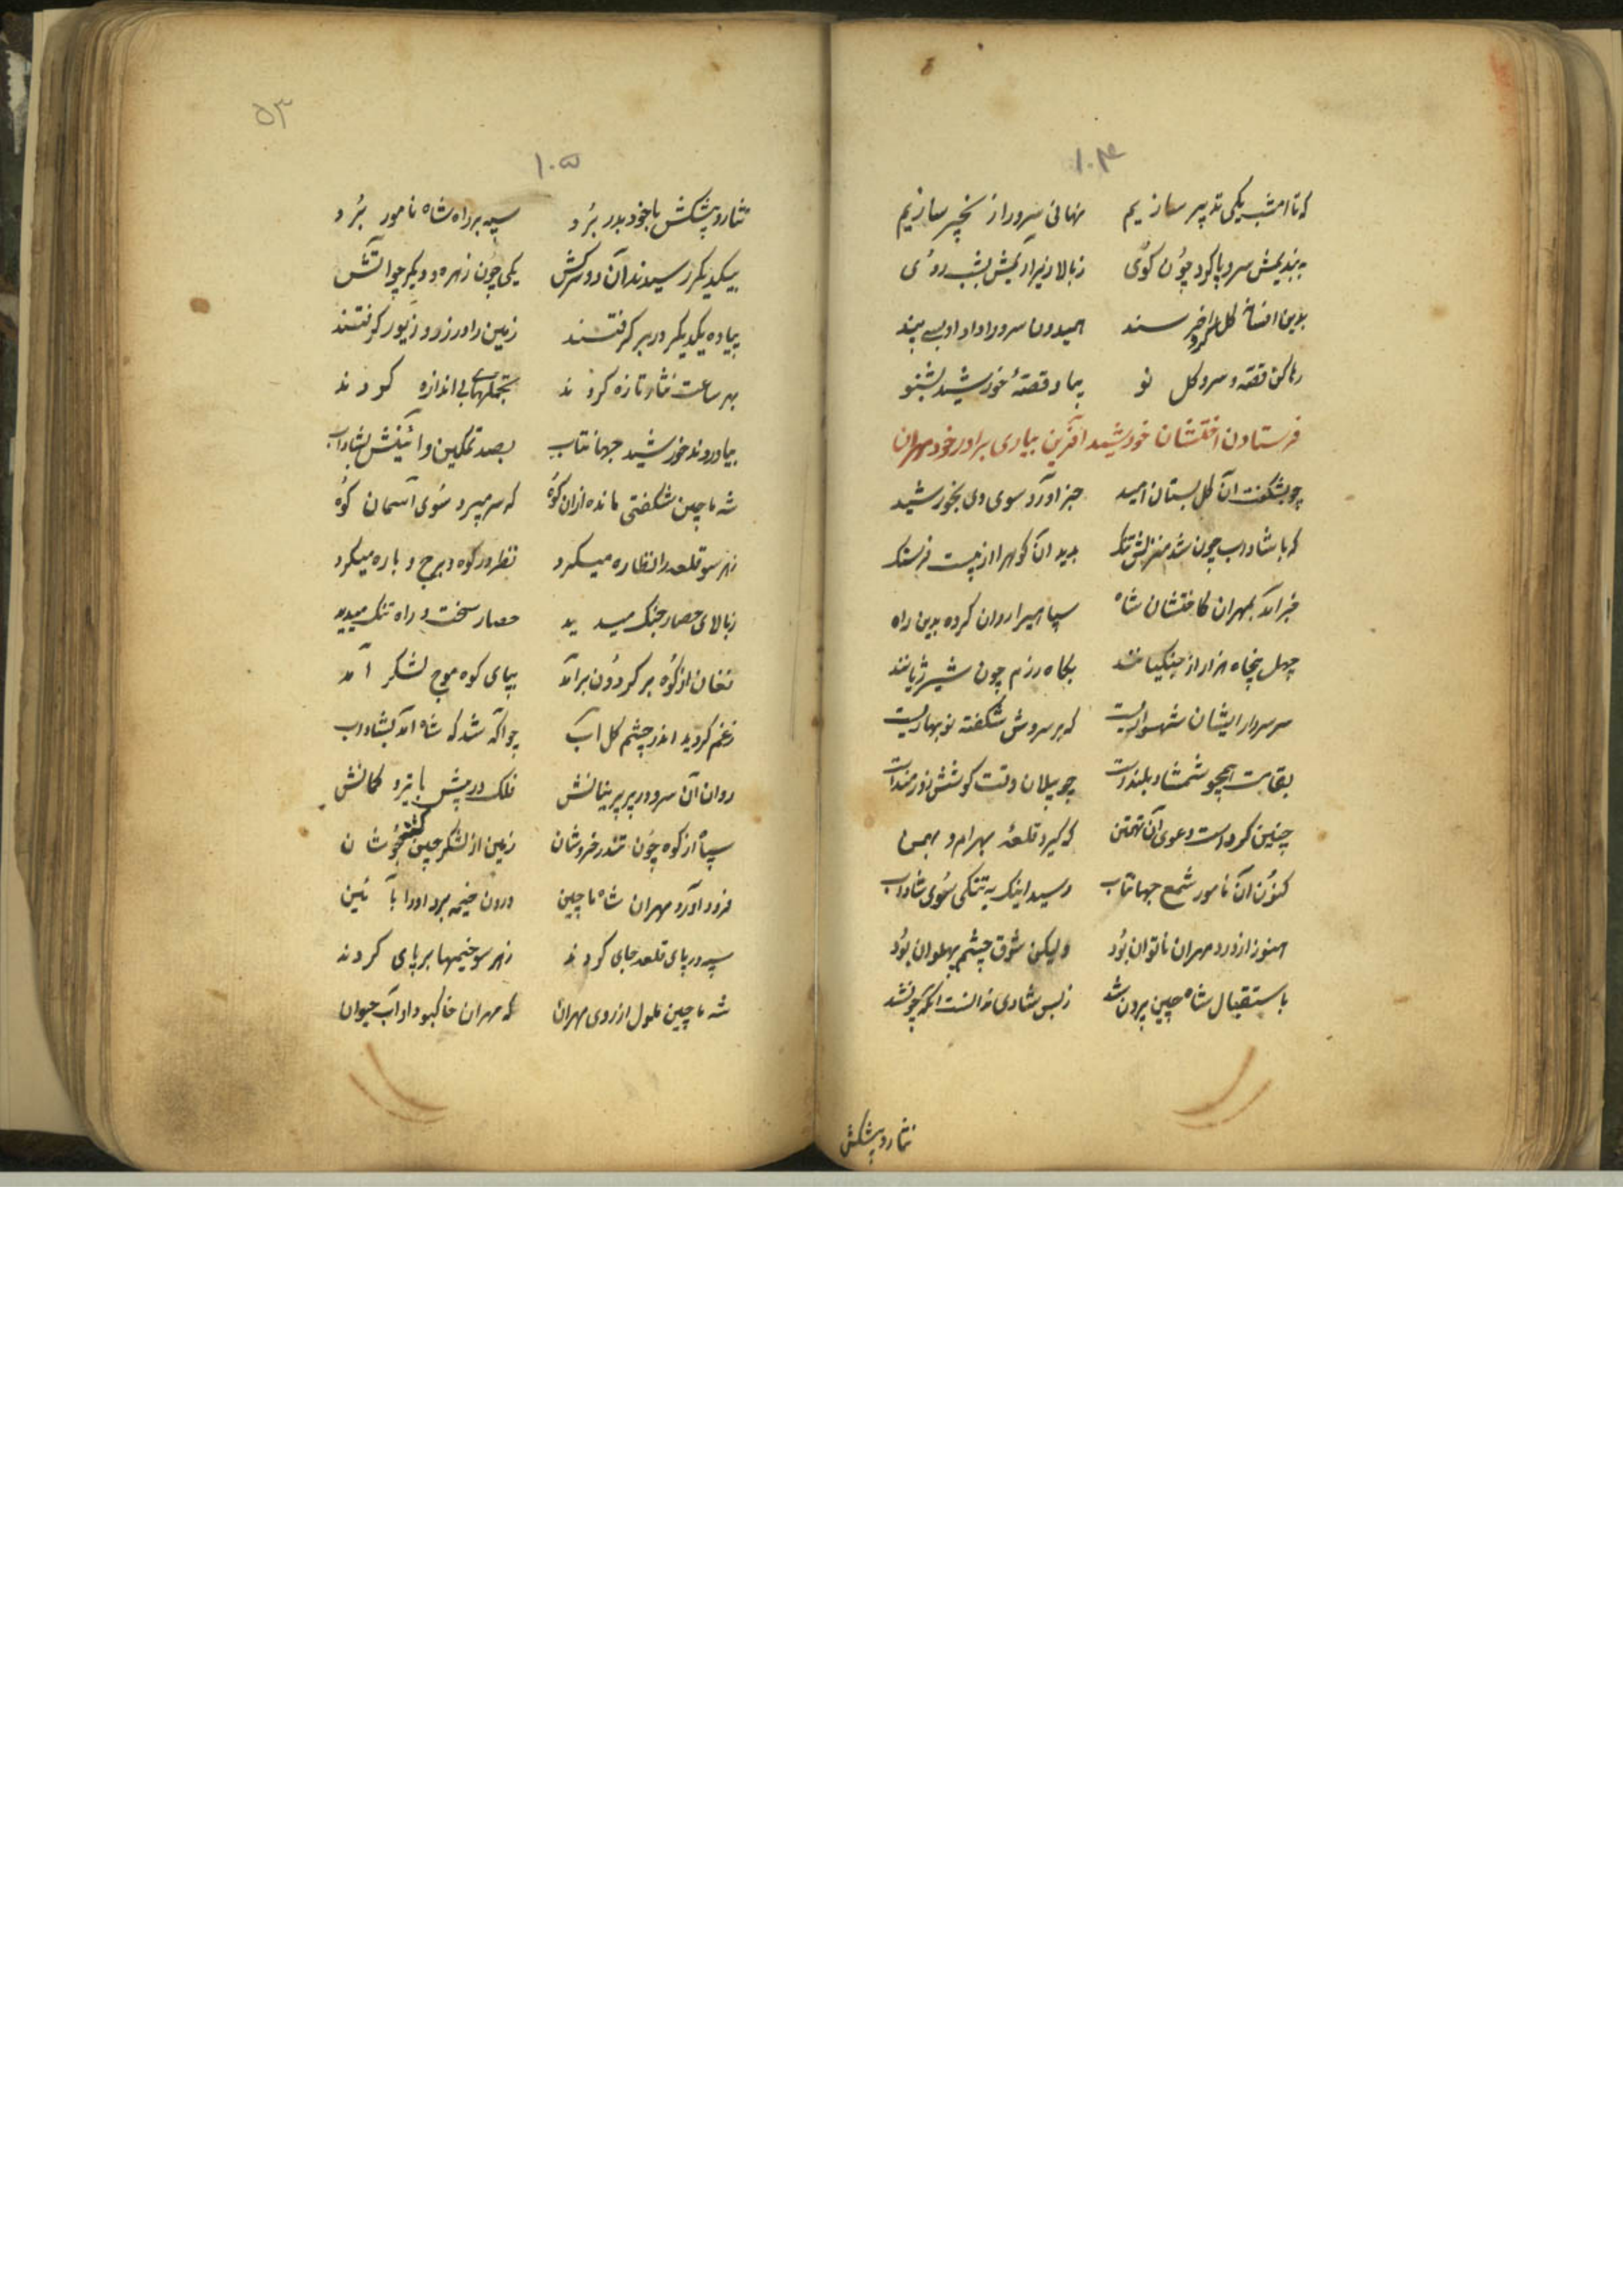 ۱۰۴
که تا امشب یکی تدبیر سازیم نهانی سرو را زنجیر سازیم
به بندیمش سر و پا کرد چون کوی ز بالا زیر آریمش بشب روی
بدین افسانه کل را کرد خرسند همیدون سرو را داد او بسی پند
رها کن قصه و سرو کل نو بیا و قصهٔ خورشید بشنو
فرستادن افلتشان خورشید آفرین بیاری برادر خود مهران
چو بشکفت آن کل بستان امید خبر آورد سوی وی بخورشید
که با شاداب چون شد منزلش تنک بدید آن کوهر از بیست فرسنک
خبر آمد بمهران کافلتشان شاه سپاهی را روان کرده بدین راه
چهل پنجاه هزار از جنکیانند بکاه رزم چون شیر ژیانند
سر سردار ایشان شهسواریست که بر سروش شکفته نوبهاریست
بقامت همچو شمشاد بلندست چو پیلان وقت کوشش زورمندست
چنین کرداست دعوی آن تهمتن که کیرد قلعهٔ بهرام و بهمن
کنون آن نامور شمع جهانتاب رسید اینک به تنکی سوی شاداب
هنوز از درد مهران ناتوان بود ولیکن شوق چشم پهلوان بود
باستقبال شاه چین برون شد ز بس شادی ندانست آنکه چون شد
نثار و پیشکش
۵۳
۱۰۵
نثار و پیشکش با خود بدر برد سپه بر راه شاه نامور برد
بیکدیکر رسیدند آن دو سرکش یکی چون زهره و دیکر چو آتش
پیاده یکدیکر در بر کرفتند زمین را در زر و زیور کرفتند
بهر ساعت نثار تازه کردند تجملهای بی اندازه کردند
بیاوردند خورشید جهانتاب بصد تمکین و آئینش بشاداب
شه ماچین شکفتی مانده از ان کوه که سر میبرد سوی آسمان کوه
ز هر سو قلعه را نظاره میکرد نظر در کوه و برج و باره میکرد
ز بالای حصار جنک میدید حصار سخت و راه تنک میدید
فغان از کوه بر کردون برآمد بپای کوه موج لشکر آمد
ز غم کردید اندر چشم کل آب چو آکه شد که شاه آمد بشاداب
روان آن سرو در بر پرنیانش فلک در پیش با تیر و کمانش
سپاه از کوه چون تندر خروشان زمین از لشکر چین کشته جوشان
فرود آورد مهران شاه ماچین درون خیمه برد او را بآئین
سپه در پای قلعه جای کردند ز هر سو خیمها بر پای کردند
شه ماچین ملول از روی مهران که مهران خاک بود او آب حیوان